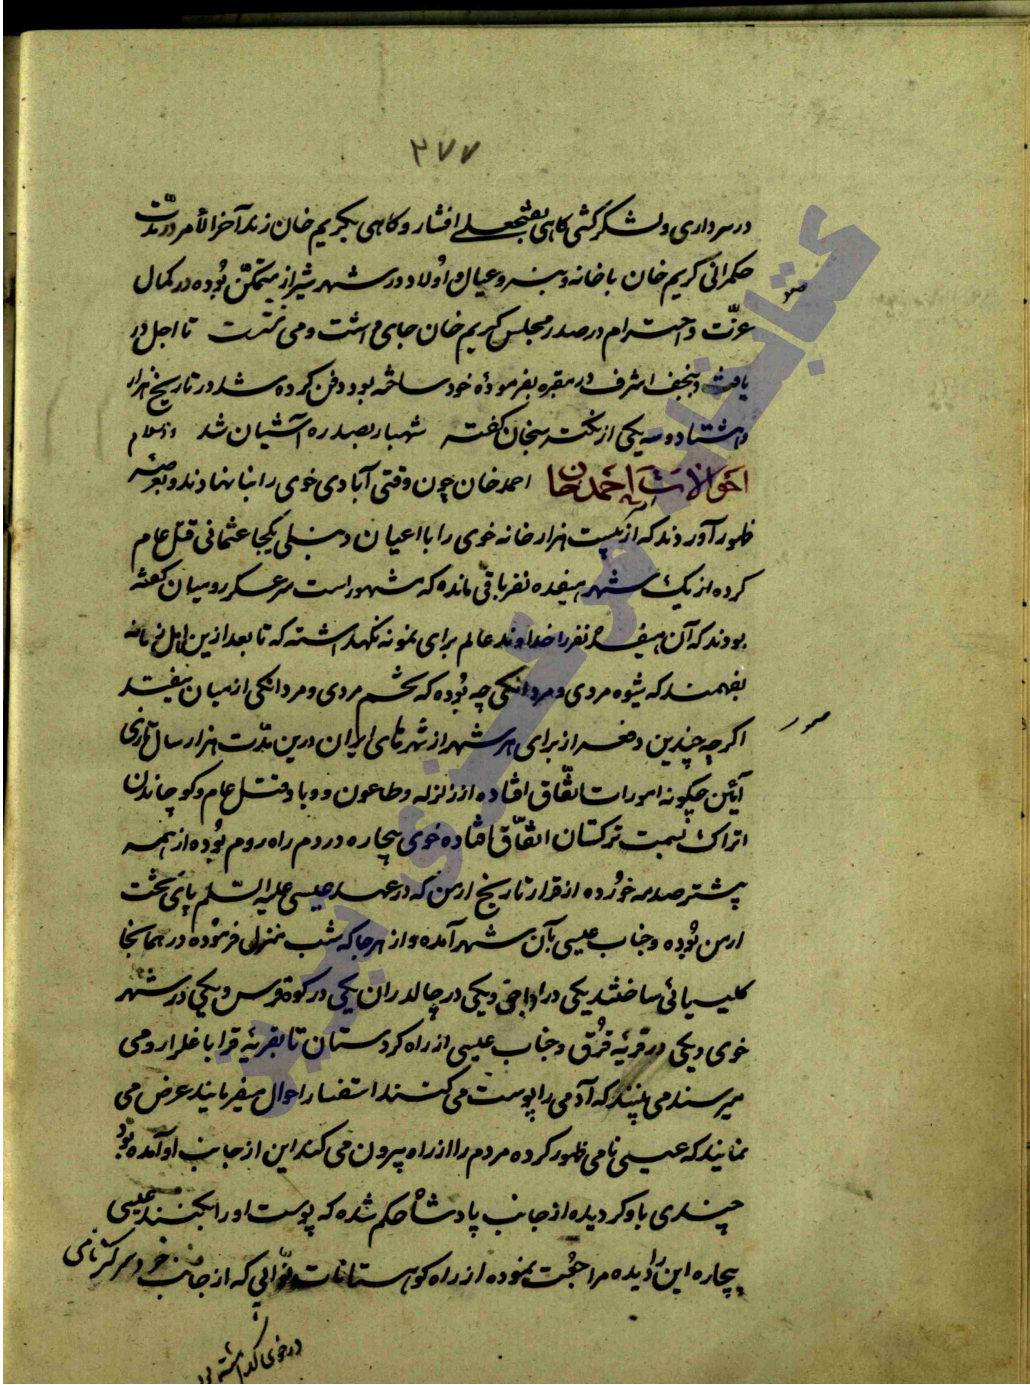 ۲۷۷
در سرداری و لشکرکشی گاهی بفتحعلی افشار و گاهی بکریم خان زند آخر الأمر در مدّت
حکمرانی کریم خان باخانه و بنه و عیال و اولاد در شهر شیراز متمکّن بوده در کمال
عزّت و احترام در صدر مجلس کریم خان جای داشت و می نشست تا اجل در
یافت و بنجف اشرف در مقبره بفرمودهٔ خود ساخته بود دفن کرده شد در تاریخ هزار
و هشتاد و سه یکی از نکته سنجان گفته شهباز بصدره آشیان شد والسلام
احوالات احمد خان احمد خان چون وقتی آبادی خوی را بنا نهادند و بعرصه
ظهور آوردند که از بیست هزار خانه خوی را با اعیان دنبلی یکجا عثمانی قتل عام
کرده از یک شهر هیفده نفر باقی مانده که مشهور است سرعسکر رومیان گفته
بودند که آن هیفده نفر را خداوند عالم برای نمونه نگهداشته که تا بعد ازین اهل زمانه
بفهمند که شیوه مردی و مردانگی چه بوده که تخم مردی و مردانگی از میان نیفتد
اگرچه چندین دفعه از برای هر شهر از شهرهای ایران درین مدّت هزار سال تاری
آیین چگونه امورات اتّفاق افتاده از زلزله و طاعون و وبا و قتل عام و کوچاندن
اتراک بسمت ترکستان اتّفاق افتاده خوی بیچاره در دم راه روم بوده از همه
پیشتر صدمه خورده از قرار تاریخ ارمن که در عهد عیسی علیه السّلم پای تخت
ارمن بوده و جناب عیسی بآن شهر آمده و از هرجا که شب منزل فرموده در همانجا
کلیسیائی ساختند یکی در اواجق و یکی در چالدران یکی در کوه قرس و یکی در شهر
خوی و یکی در قریهٔ قرق و جناب عیسی از راه کردستان تا بقریهٔ قرا باغلار رومی
میرسند می بینند که آدمی را پوست می کنند استفسار احوال میفرمایند عرض می
نمایند که عیسی نامی ظهور کرده مردم را از راه بیرون می کند این از جانب او آمده بود
چندی باو گردیده از جانب پادشاه حکم شده که پوست او را بکنند عیسی
بیچاره این را دیده مراجعت نموده از راه کوهستانات که از جانب خود سرکز نامی
در خوی گذاشته